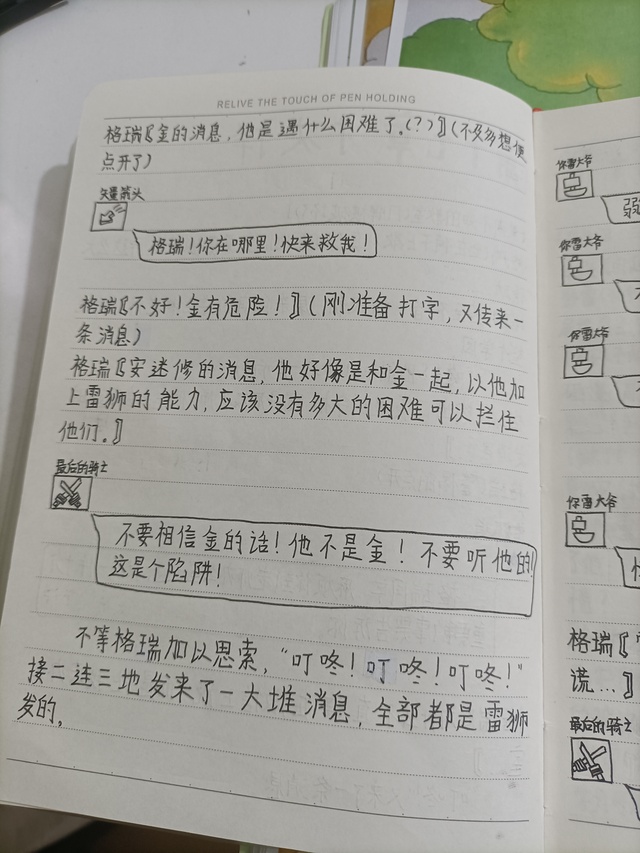 RELIVE THE TOUCH OF PEN HOLDING
格瑞〖金的消息，他是遇什么困难了。(？)〗(不及多想便
点开了)
矢量箭头
格瑞！你在哪里！快来救我！
格瑞〖不好！金有危险！〗(刚准备打字，又传来一
条消息)
格瑞〖安迷修的消息，他好像是和金一起，以他加
上雷狮的能力，应该没有多大的困难可以拦住
他们。〗
最后的骑士
不要相信金的话！他不是金！不要听他的！
这是个陷阱！
不等格瑞加以思索，“叮咚！叮咚！叮咚！”
接二连三地发来了一大堆消息，全部都是雷狮
发的。
你雷大爷
弱
你雷大爷
你雷大爷
你雷大爷
格瑞〖
谎…〗
最后的骑士